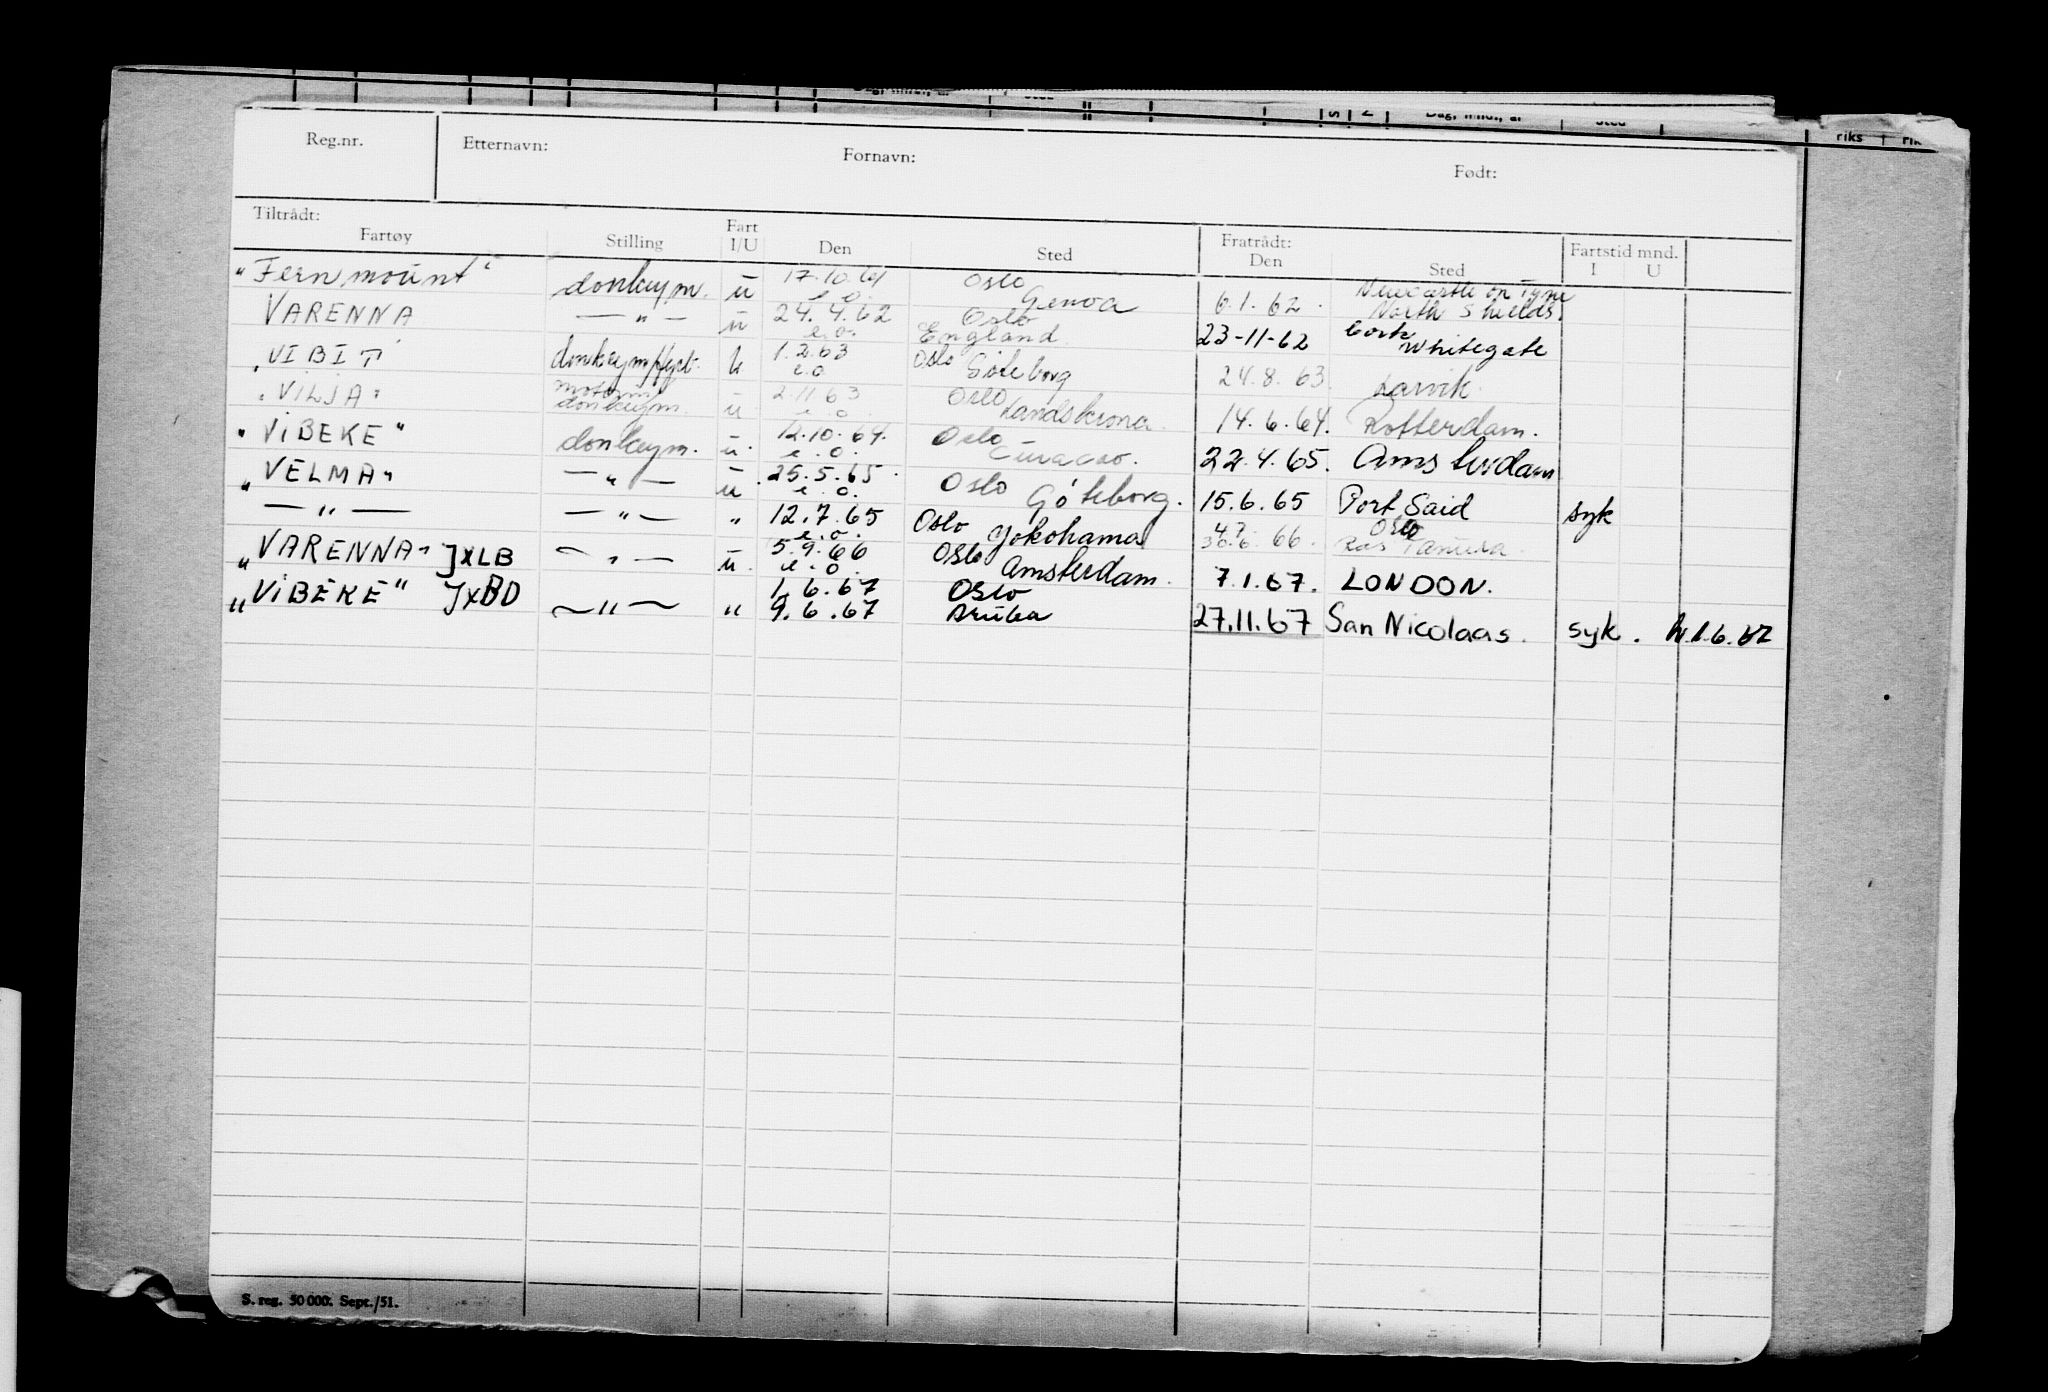 Reg.nr. Etternavn: Fornavn: Født:
Tiltrådt: Fratrådt: Fartstid mnd.
Fartøy Stilling Fart I/U Den Sted Den Sted I U
"Fernmount" donkeym. u 17.10.61 e.o. Oslo Genoa 6.1.62. Newcastle on Tyne North Shields.
VARENNA —"— u 24.4.62 e.o. Oslo England 23-11-62 Cork Whitegate
"VIBIT" 1.2.63 e.o Oslo Göteborg 24.8.63. Larvik.
"VILJA" motorm donkeym. u 2.11.63 e.o. Oslo Landskrona. 14.6.64. Rotterdam.
"ViBEKE" donkeym. u. 12.10.64. e.o. Oslo Curacao. 22.4.65. Amsterdam
"VELMA" —"— u 25.5.65. e.o. Oslo Göteborg. 15.6.65 Port Said syk
—"— —"— " 12.7.65 e.o. Oslo Yokohama 4.7. 30.6.66. Oslo Ras Tanura.
"VARENNA" JXLB —"— u. 5.9.66 e.o. Oslo Amsterdam. 7.1.67. LONDON.
"ViBEKE" JXBD —"— " 1.6.67 9.6.67 Oslo Aruba 27.11.67 San Nicolaas. syk. 1.6.67
S. reg. 50 000. Sept./51.